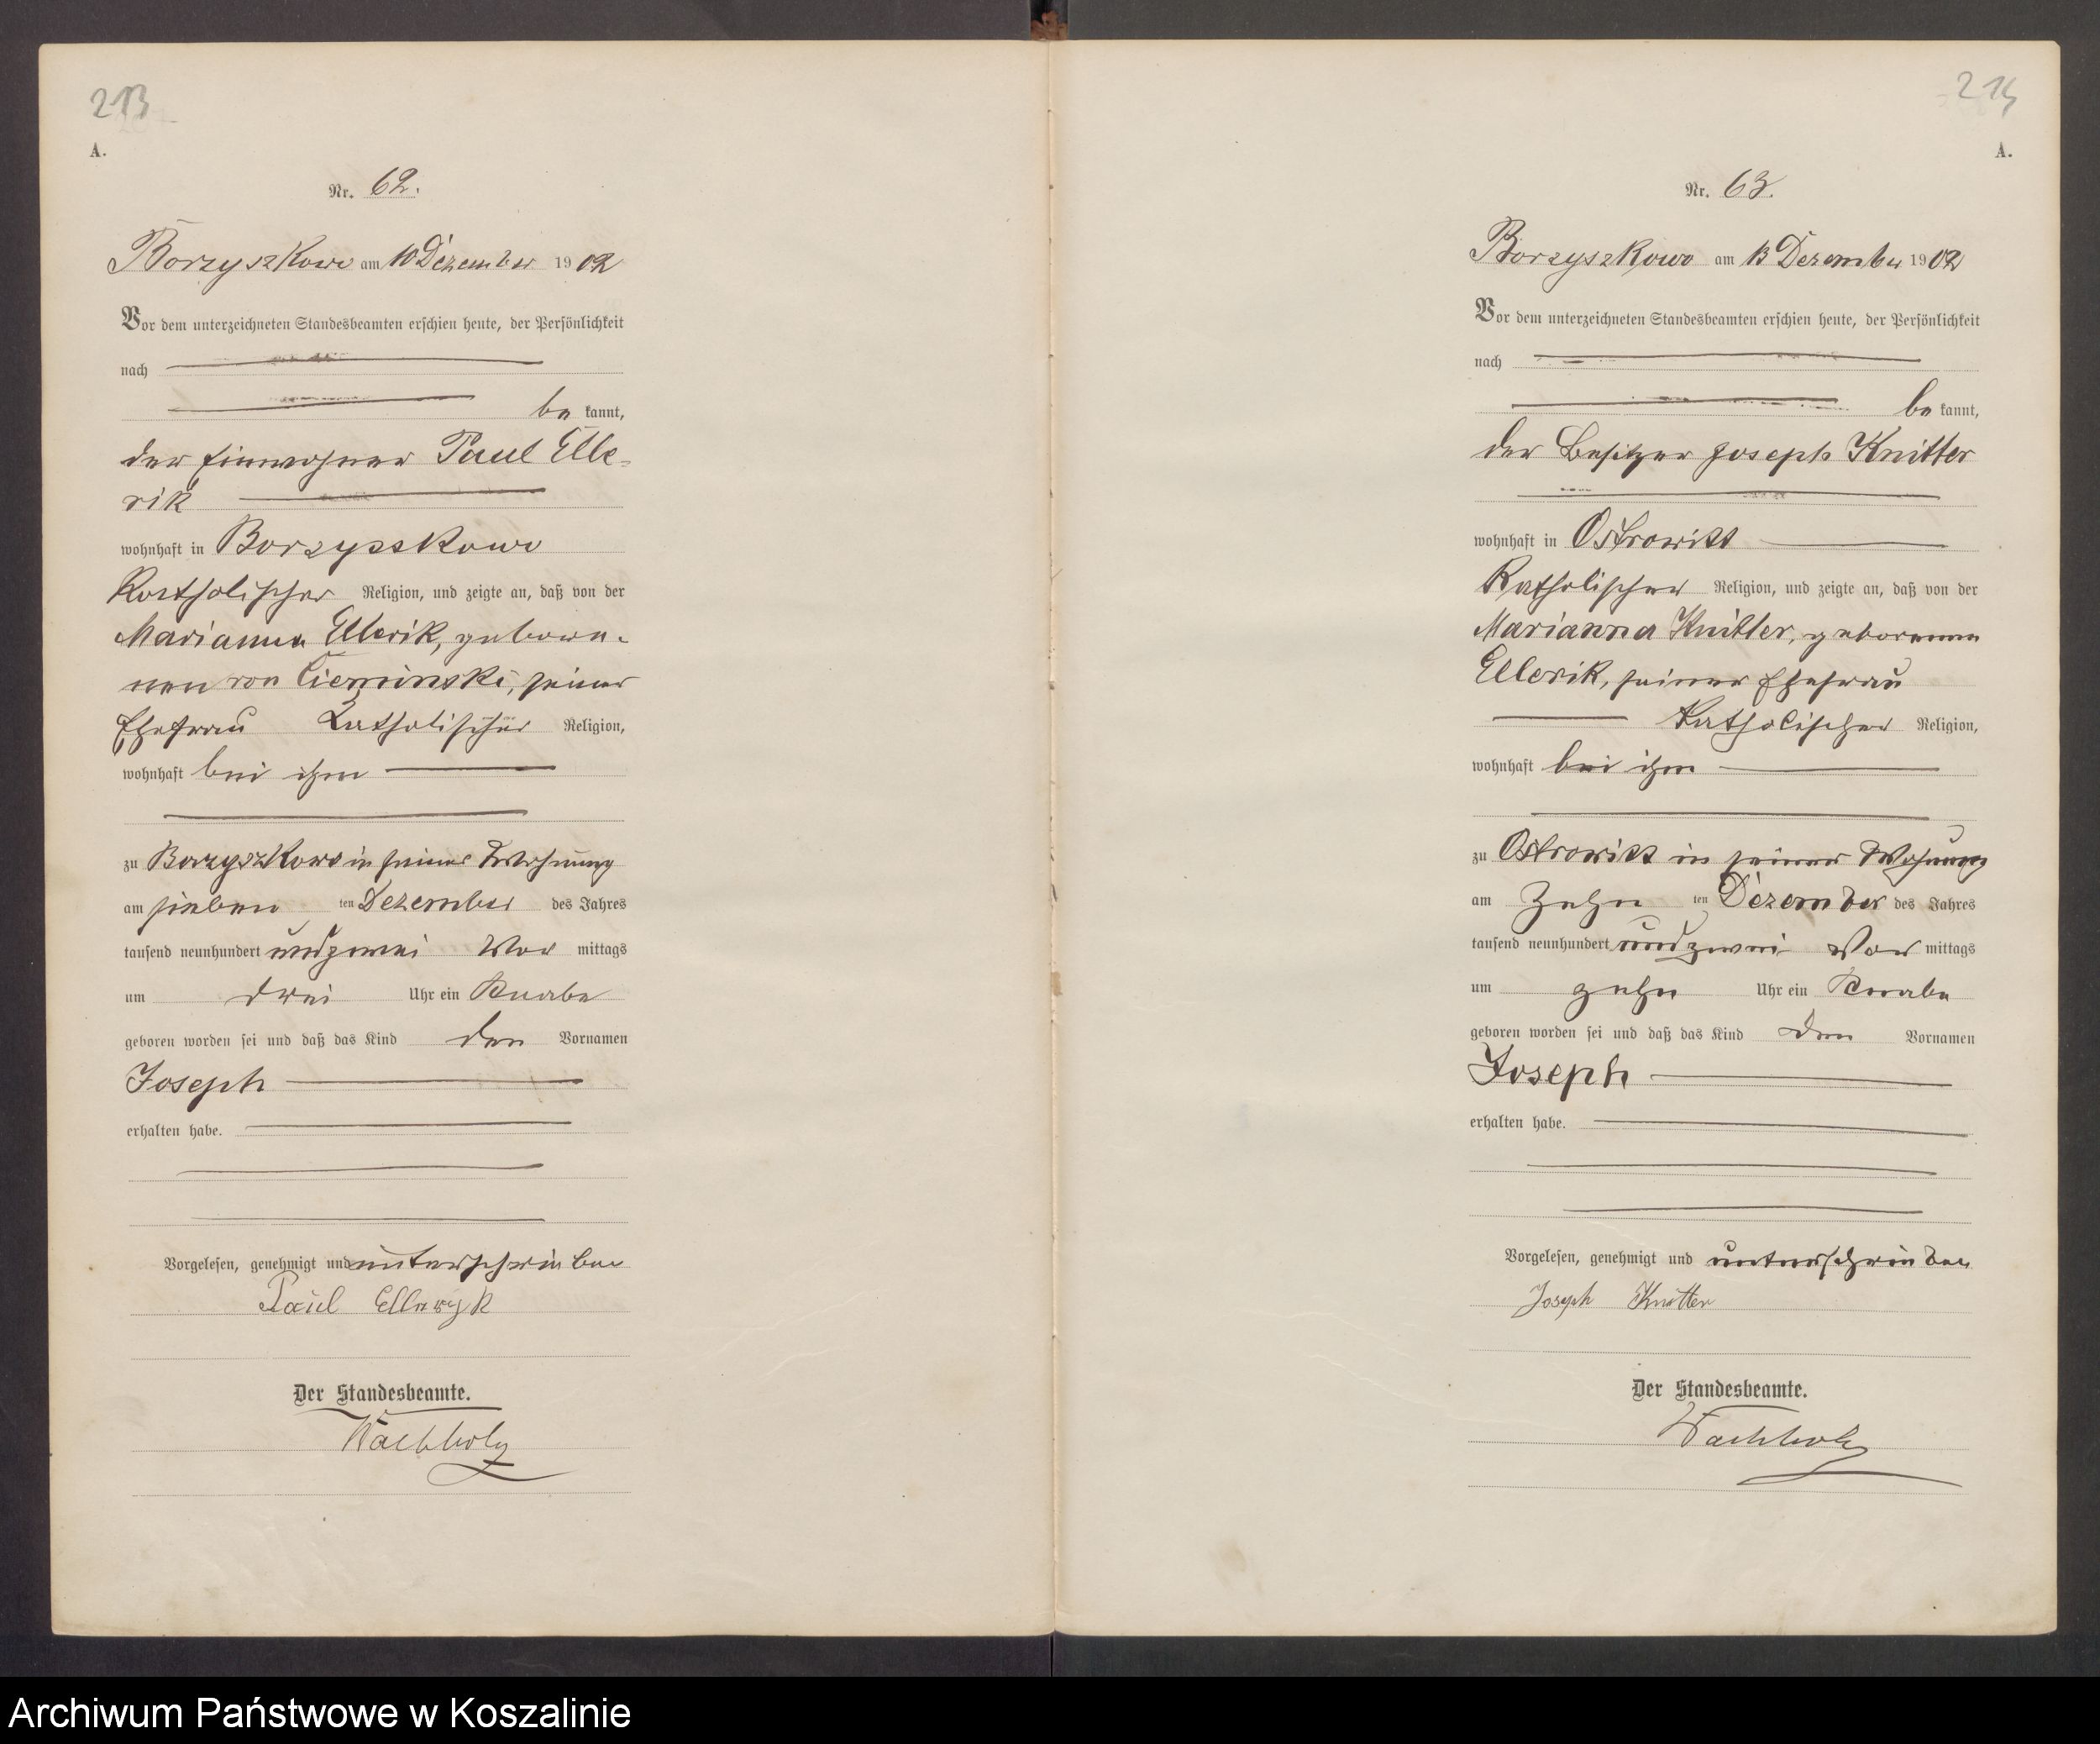 213
A.
Nr. 62.
Borzyszkowo am 10 Dezember 1902
Vor dem unterzeichneten Standesbeamten erschien heute, der Persönlichkeit
nach
be kannt,
der Einwohner Paul Elle-
rik
wohnhaft in Borzysskowo
katholischer Religion, und zeigte an, daß von der
Marianna Ellerik, gebore-
nen von Cieminski, seiner
Ehefrau katholischer Religion,
wohnhaft bei ihm
zu Borzyszkowo in seiner Wohnung
am sieben ten Dezember des Jahres
tausend neunhundert und zwei Vor mittags
um drei Uhr ein Knabe
geboren worden sei und daß das Kind den Vornamen
Joseph
erhalten habe.
Vorgelesen, genehmigt und unterschrieben
Paul Elleryk
Der Standesbeamte.
Wachholz
214
A.
Nr. 63.
Borzyszkowo am 13 Dezember 1902
Vor dem unterzeichneten Standesbeamten erschien heute, der Persönlichkeit
nach
be kannt,
der Besitzer Joseph Knitter
wohnhaft in Ostrowitt
katholischer Religion, und zeigte an, daß von der
Marianna Knitter, geborenen
Ellerik, seiner Ehefrau
katholischer Religion,
wohnhaft bei ihm
zu Ostrowitt in seiner Wohnung
am zehn ten Dezember des Jahres
tausend neunhundert und zwei Vor mittags
um zehn Uhr ein Knabe
geboren worden sei und daß das Kind den Vornamen
Joseph
erhalten habe.
Vorgelesen, genehmigt und unterschrieben
Joseph Knitter
Der Standesbeamte.
Wachholz
Archiwum Państwowe w Koszalinie